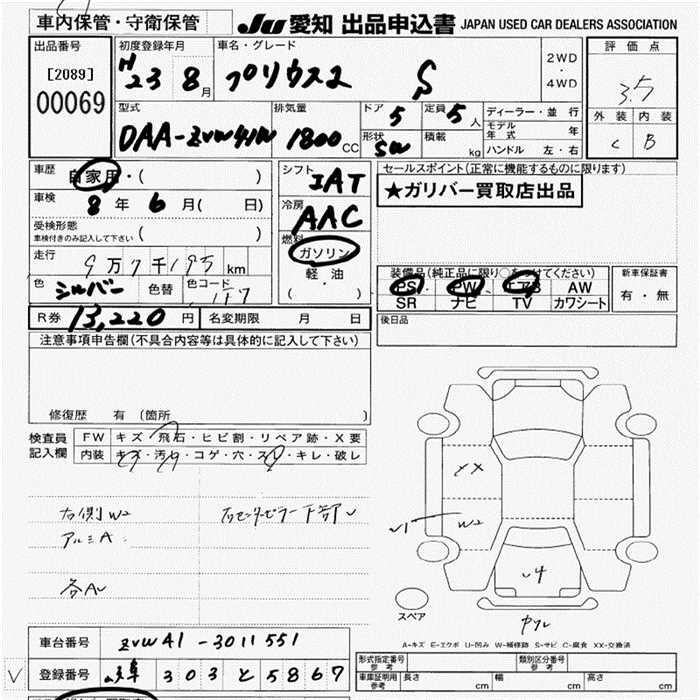 車内保管・守衛保管
JU 愛知 出品申込書 JAPAN USED CAR DEALERS ASSOCIATION
出品番号
[2089]
00069
初度登録年月
H 23 8月
車名・グレード
プリウスα S
2WD
・
4WD
評価点
3.5
外装 内装
C B
型式
DAA-ZVW41W
排気量
1800 CC
ドア
5
定員
5人
形状
SW
積載
kg
ディーラー・並行
モデル年式 年
ハンドル 左・右
車歴
自家用・( )
車検
8年 6月( 日)
受検形態
車検付きのみ記入して下さい ( )
走行
9万7千195km
色
シルバー
色替
色コード
117
シフト
IAT
冷房
AAC
燃料
ガソリン
軽・油
( ・ )
セールスポイント(正常に機能するものに限ります)
★ガリバー買取店出品
装備品(純正品に限り○をつけてください)
PS PW エアB AW
SR ナビ TV カワシート
新車保証書
有・無
後日品
R券 13,220円
名変期限 月 日
注意事項申告欄(不具合内容等は具体的に記入して下さい)
修復歴 有(箇所 )
検査員
記入欄
FW キズ・飛石・ヒビ割・リペア跡・X要
内装 キズ・汚れ・コゲ・穴・スレ・キレ・破レ
右側W2
アルミA
各AU
右センターピラー下部
XX
W2
U4
スペア
A=キズ E=エクボ U=凹み W=補修跡 S=サビ C=腐食 XX=交換済
車台番号
ZVW41-3011551
登録番号
岐阜 303 と 5867
形式指定番号
参考
類別区分番号
参考
車庫証明用
参考
長さ cm
幅 cm
高さ cm